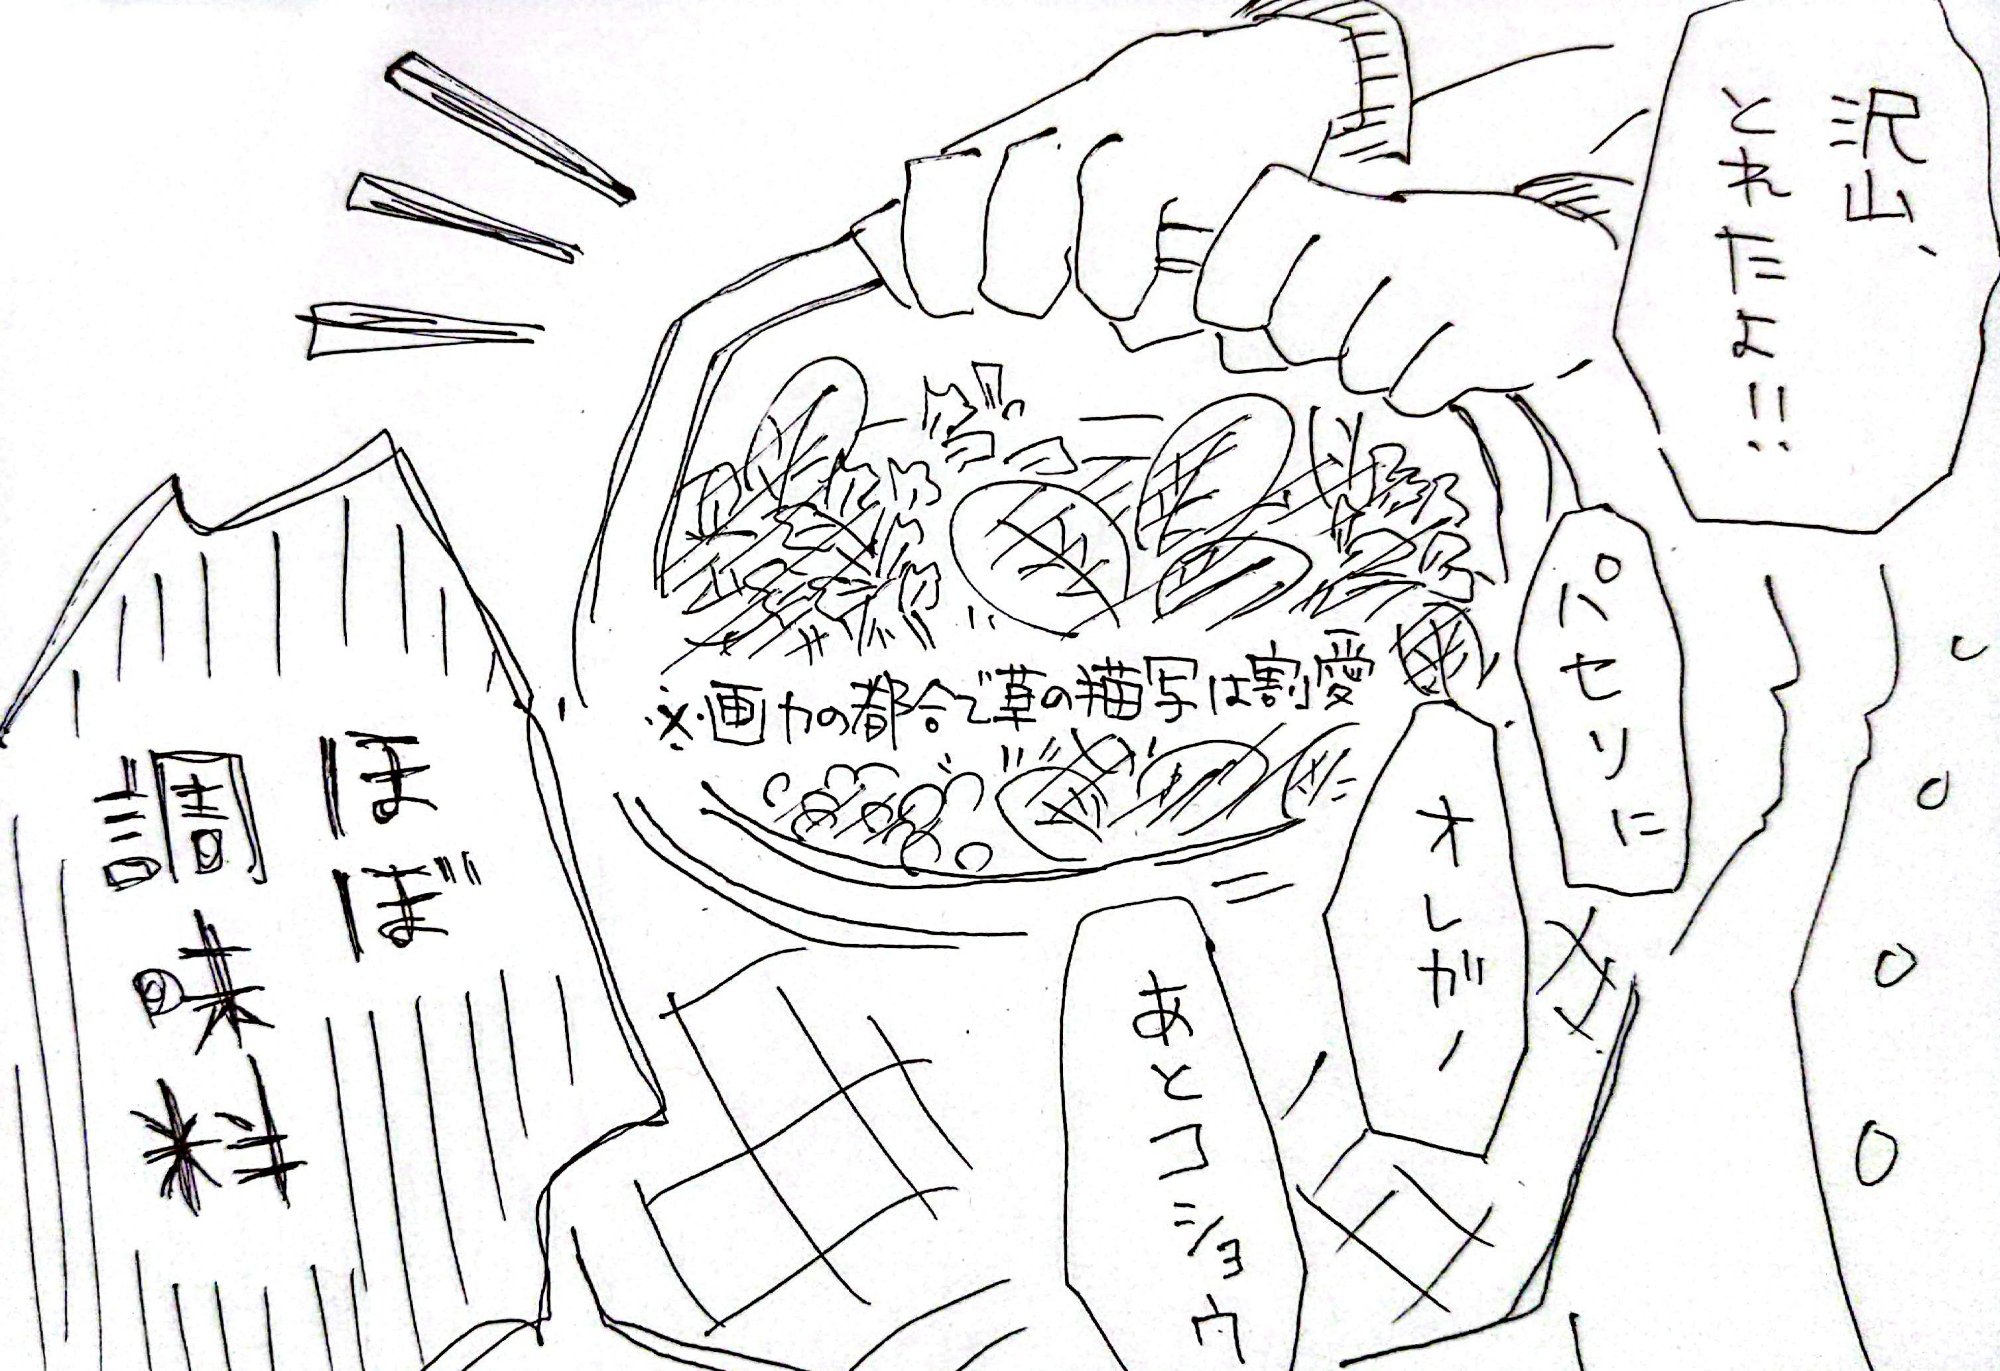 沢山、
とれたよ!!
パセリに
オレガノ
あとコショウ
※画力の都合で草の描写は割愛
ほぼ
調味料